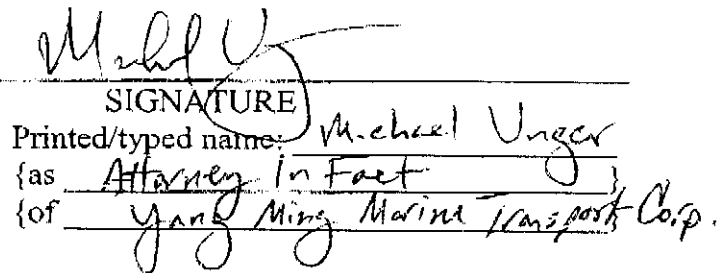 Michael U
SIGNATURE
Printed/typed name: Michael Unger
{as Attorney in Fact }
{of Yang Ming Marine Transport Corp. }